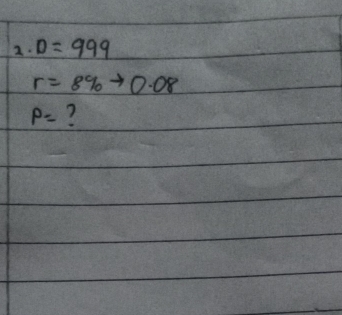 2. D = 999
r = 8% → 0.08
P = ?